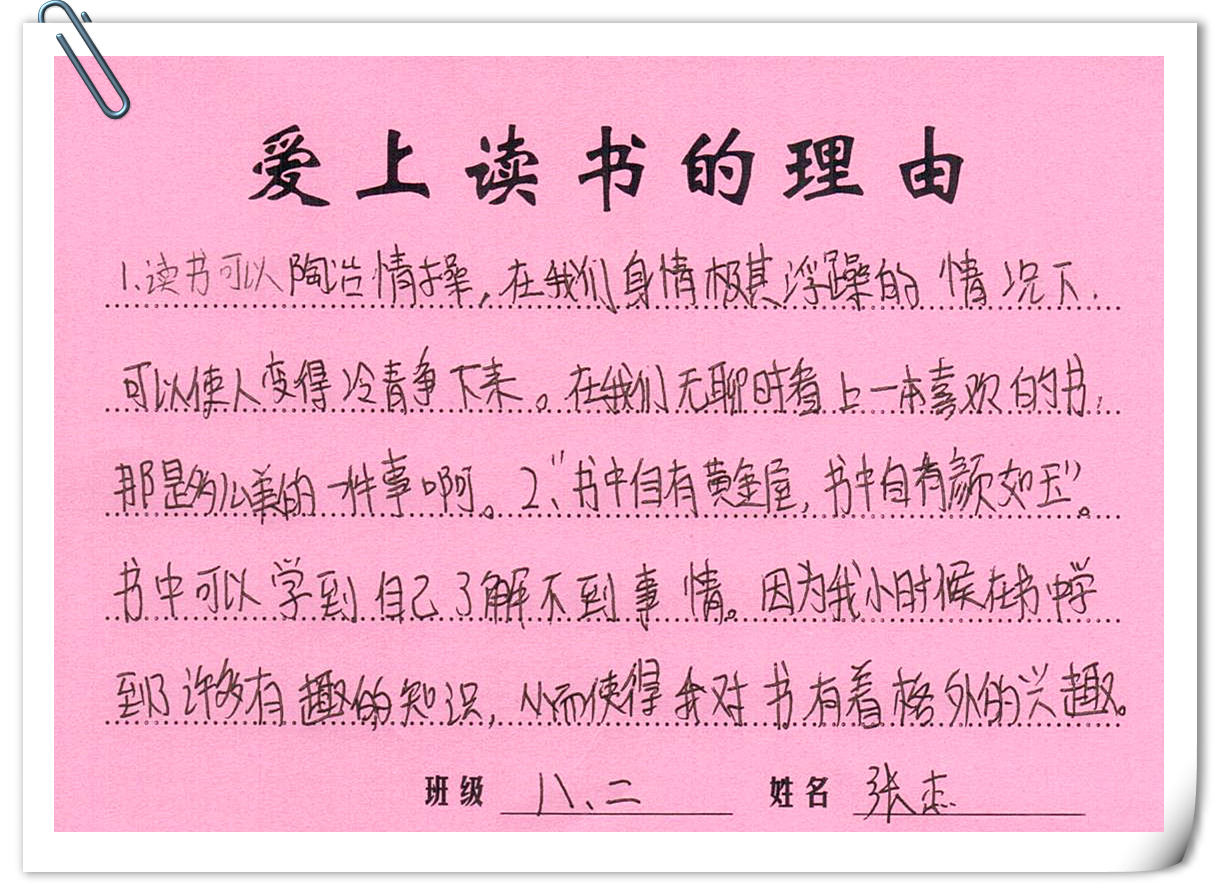 爱上读书的理由
1.读书可以陶冶情操,在我们身情极其浮躁的情况下,
可以使人变得冷青争下来。在我们无聊时看上一本喜欢的书,
那是多么美的一件事啊。2、“书中自有黄金屋,书中自有颜如玉”。
书中可以学到自己了解不到事情。因为我小时候在书中学
到了许多有趣的知识,从而使得我对书有着格外的兴趣。
班级 八、二 姓名 张杰